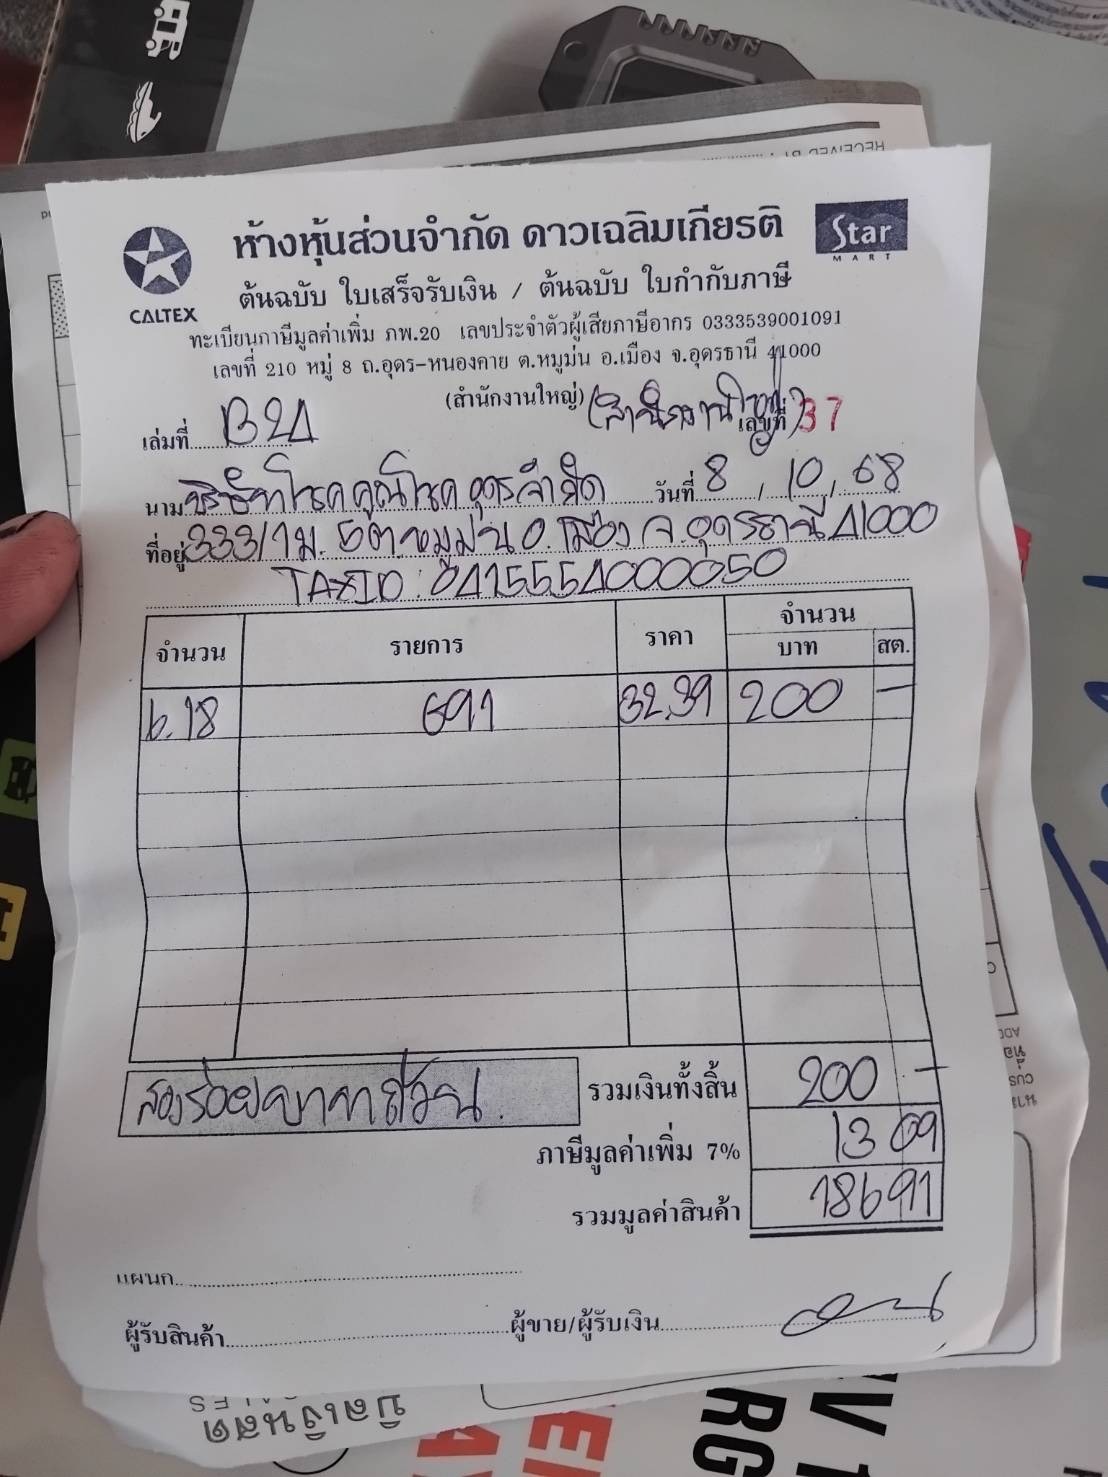 RECEIVED BY
CALTEX
ห้างหุ้นส่วนจำกัด ดาวเฉลิมเกียรติ
Star
MART
ต้นฉบับ ใบเสร็จรับเงิน / ต้นฉบับ ใบกำกับภาษี
ทะเบียนภาษีมูลค่าเพิ่ม ภพ.20 เลขประจำตัวผู้เสียภาษีอากร 0333539001091
เลขที่ 210 หมู่ 8 ถ.อุดร-หนองคาย ต.หมูม่น อ.เมือง จ.อุดรธานี 41000
(สำนักงานใหญ่) (สำนักงานใหญ่)
เล่มที่ B24 เลขที่ 37
นาม บริษัทโชคคูณโชค อุดร จำกัด วันที่ 8, 10, 68
ที่อยู่ 333/1 ม. 5 ต. หมูม่น อ. เมือง จ. อุดรธานี 41000
TAXID : 0415554000050
จำนวน รายการ ราคา จำนวน
บาท สต.
6.18 G91 32.39 200 –
สองร้อยบาทถ้วน. รวมเงินทั้งสิ้น 200 –
ภาษีมูลค่าเพิ่ม 7% 13 09
รวมมูลค่าสินค้า 186 91
แผนก
ผู้รับสินค้า ผู้ขาย/ผู้รับเงิน
บิลเงินสด